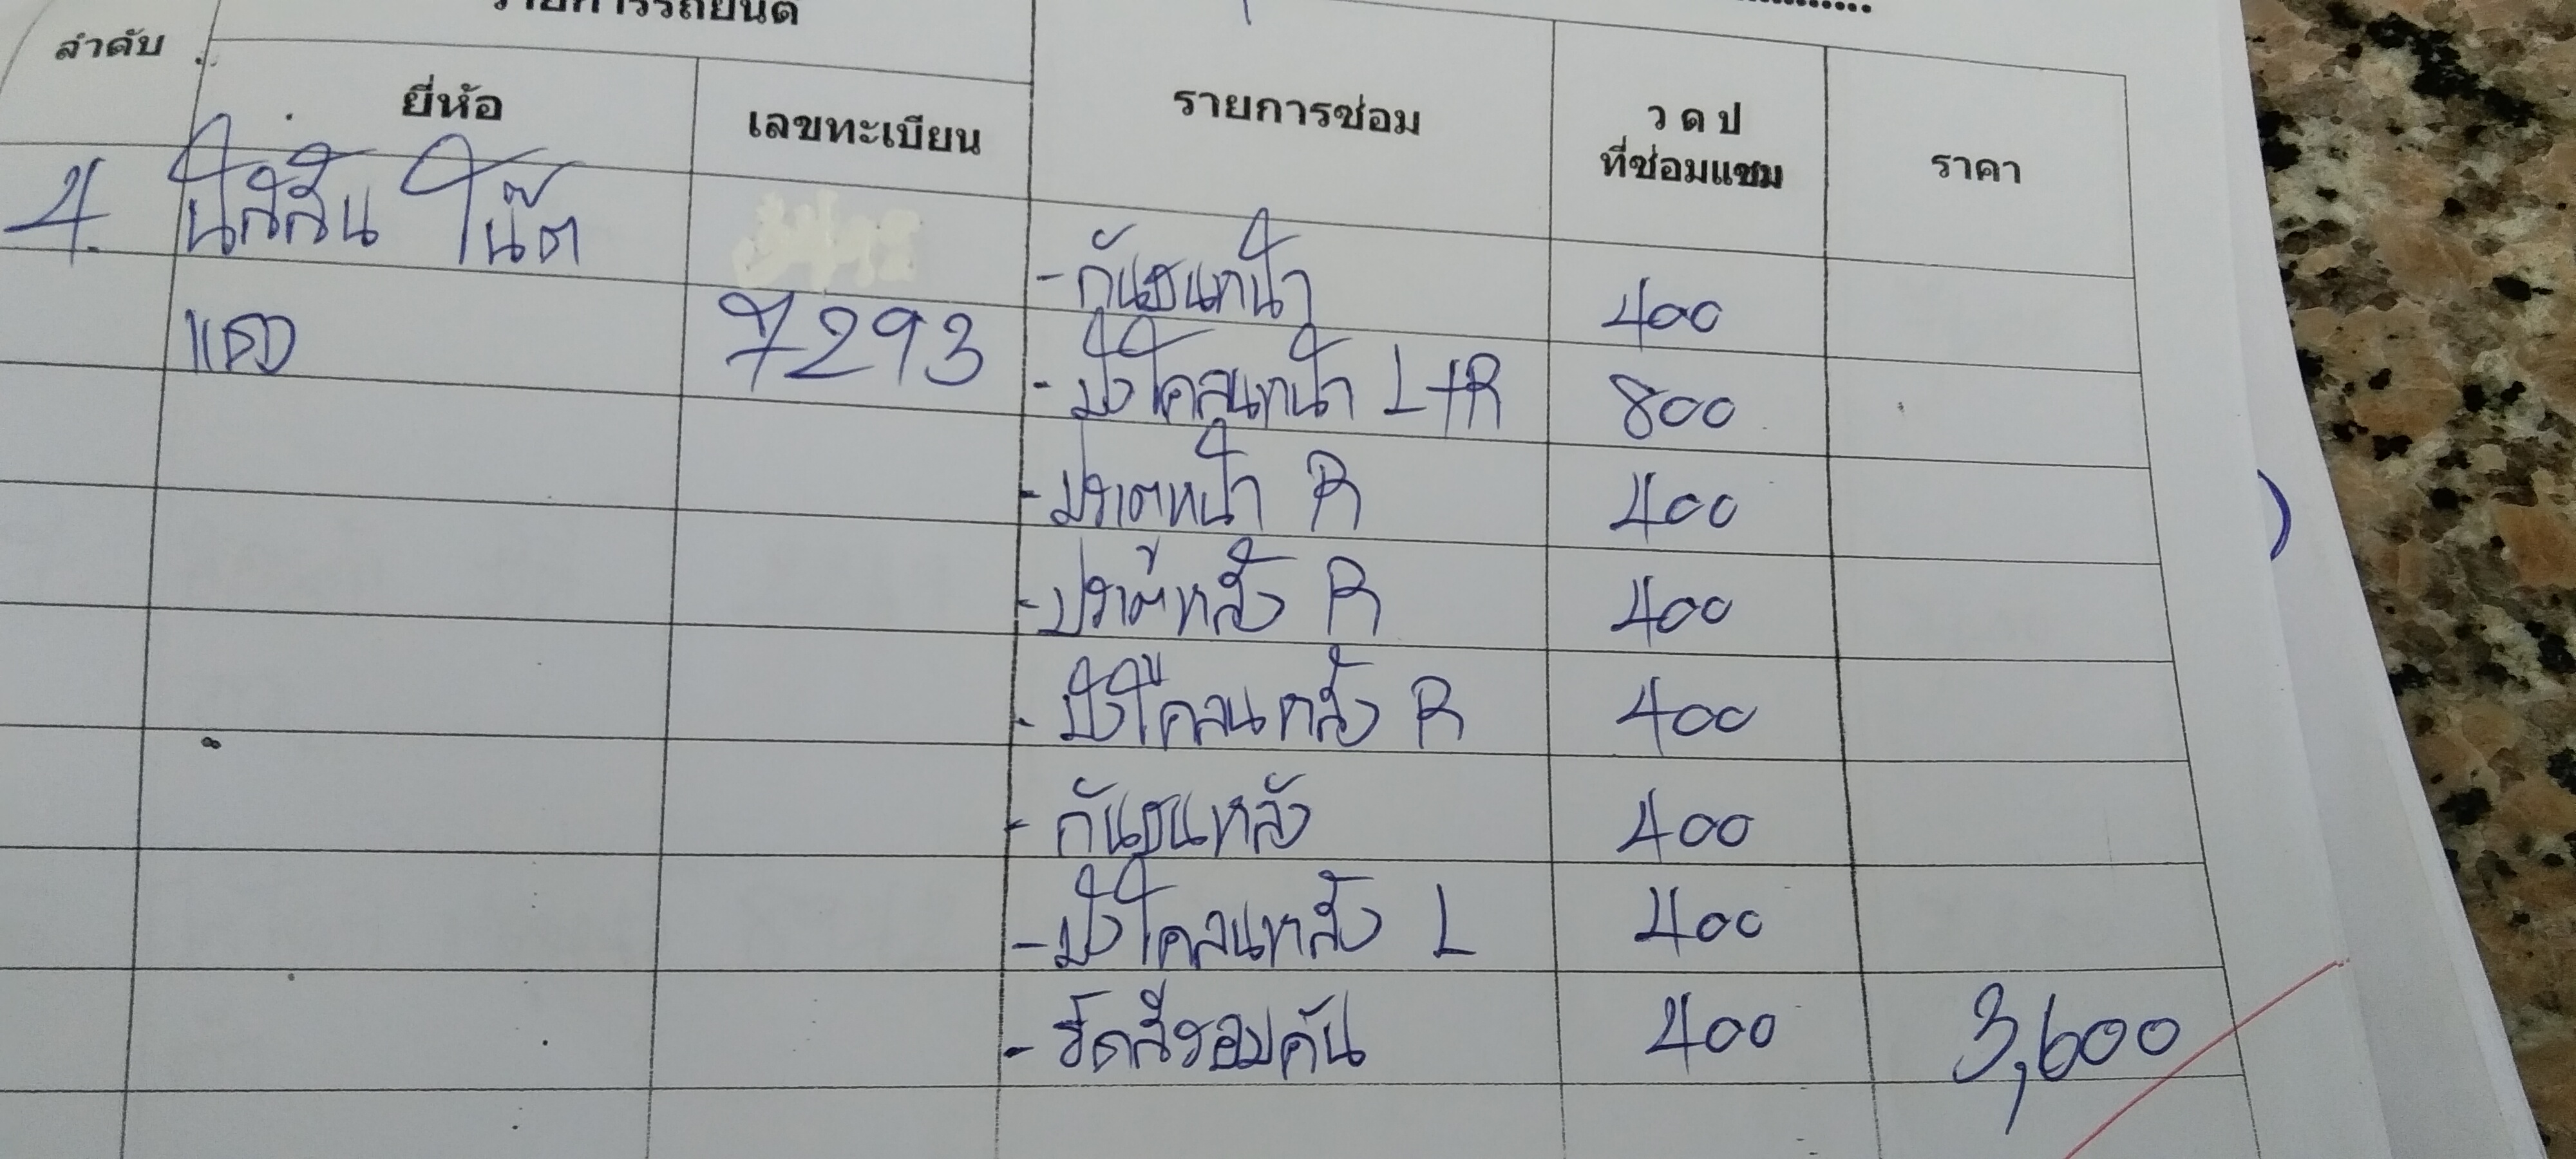 รายการรถยนต์
ลำดับ ยี่ห้อ เลขทะเบียน รายการซ่อม ว ด ป ที่ซ่อมแซม ราคา
4. นิสสัน โน๊ต - กันชนหน้า 400
แดง 7293 - บังโคลนหน้า L+R 800
- ประตหน้า R 400
- ประตูหลัง R 400
- บังโคลนหลัง R 400
- กันชนหลัง 400
- บังโคลนหลัง L 400
- รีดสีรอบคัน 400 3,600